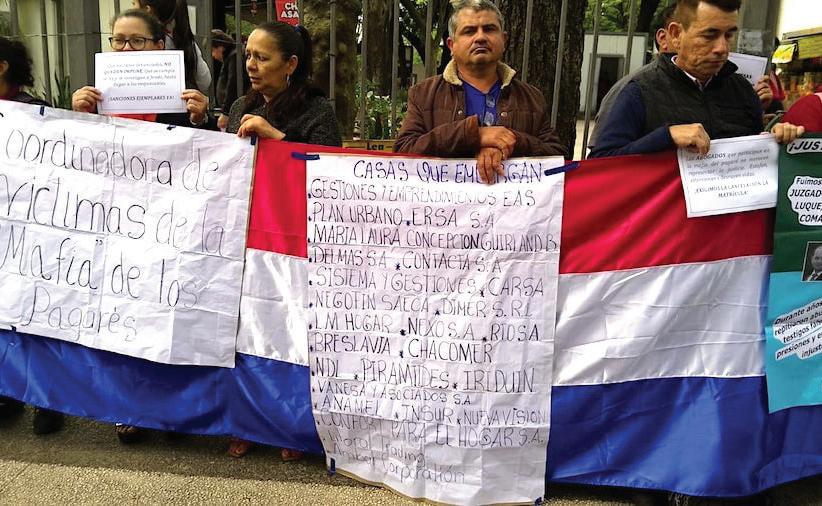 Coordinadora de
víctimas de la
"Mafia" de los
Pagarés
NO
QUEDEN IMPUNE
¡SANCIONES EJEMPLARES YA!
CASAS QUE EMBARGAN
GESTIONES Y EMPRENDIMIENTOS EAS
PLAN URBANO. ERSA S.A
MARIA LAURA CONCEPCION GUIRLAND B.
DELMAS S.A * CONTACTA S.A
SISTEMA Y GESTIONES * CARSA
NEGOFIN SAECA * DIMER S.R.L
LM HOGAR * NEXO S.A * RIO S.A
BRESLAVIA * CHACOMER
NDL * PIRAMIDES * IRLDUIN
VANESA Y ASOCIADOS S.A
ANAMEL * INSUR * NUEVA VISION
CONFORT PARA EL HOGAR S.A.
Corporation
Los ABOGADOS que participan en
la mafia del pagaré no merecen
representar la justicia.
¡EXIGIMOS LA CANCELACIÓN DE LA
MATRÍCULA!
¡JUS
Fuimos
JUZGADO
LUQUE,
Durante años
testigos
presiones y